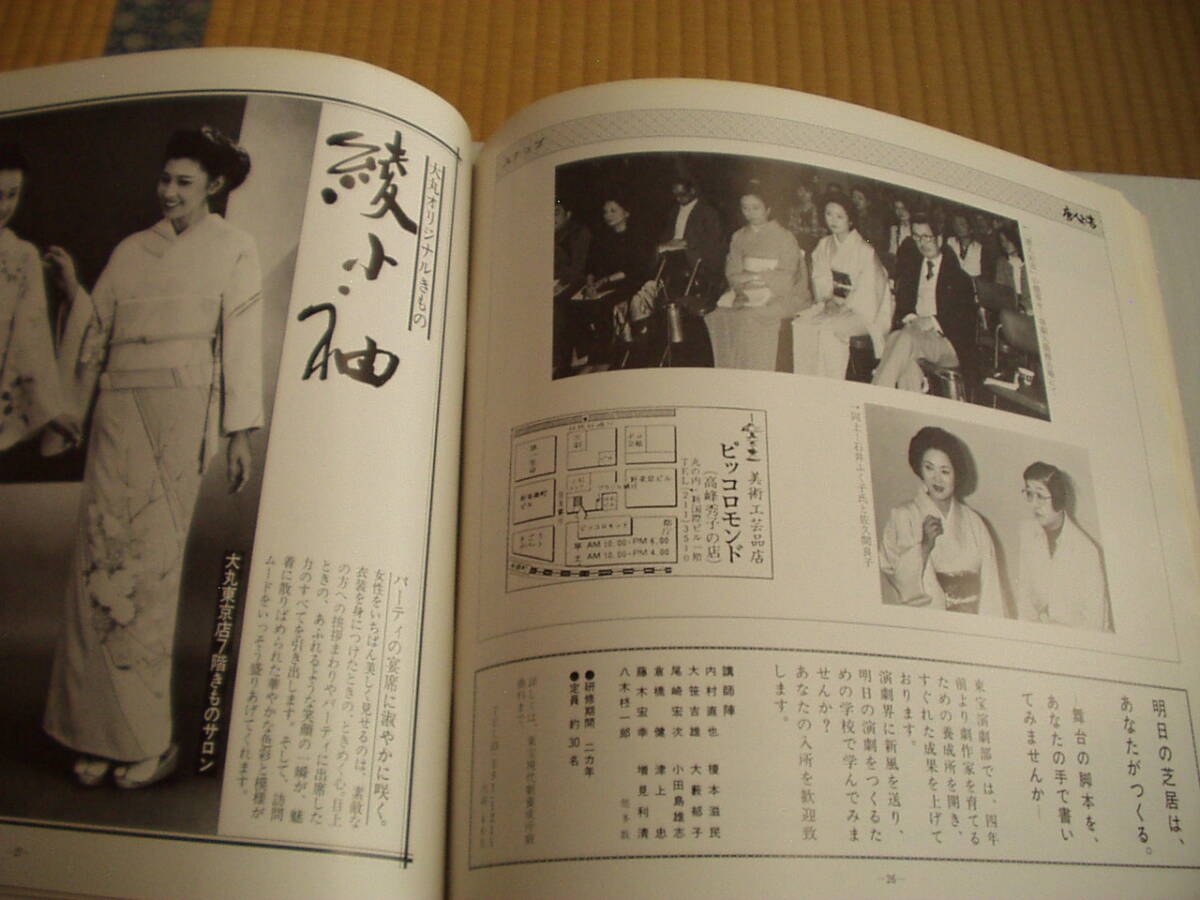 大丸オリジナルきもの
綾小袖
パーティの宴席に淑やかに咲く。
女性をいちばん美しく見せるのは、素敵な
衣装を身につけたときの、ときめく心。目上
の方への挨拶まわりやパーティに出席した
ときの、あふれるような笑顔の一瞬が、魅
力のすべてを引き出します。そして、訪問
着に散りばめられた華やかな色彩と模様が
ムードをいっそう盛りあげてくれます。
大丸東京店7階きものサロン
スナップ
同上―石井ふく子氏と佐久間良子
美術工芸品店
ピッコロモンド
(高峰秀子の店)
丸の内・新国際ビル一階
TEL(211)3510
ピッコロモンド
AM 10.00-PM 6.00
AM 10.00-PM 4.00
明日の芝居は、
あなたがつくる。
―舞台の脚本を、
あなたの手で書い
てみませんか―
東宝演劇部では、四年
前より劇作家を育てる
ための養成所を開き、
すぐれた成果を上げて
おります。
演劇界に新風を送り、
明日の演劇をつくるた
めの学校で学んでみま
せんか?
あなたの入所を歓迎致
します。
講師陣
内村直也 榎本滋民
大笹吉雄 大藪郁子
尾崎宏次 小田島雄志
倉橋健 津上忠
藤木宏幸 増見利清
八木柊一郎 他多数
●研修期間 二カ年
●定員 約30名
―26―